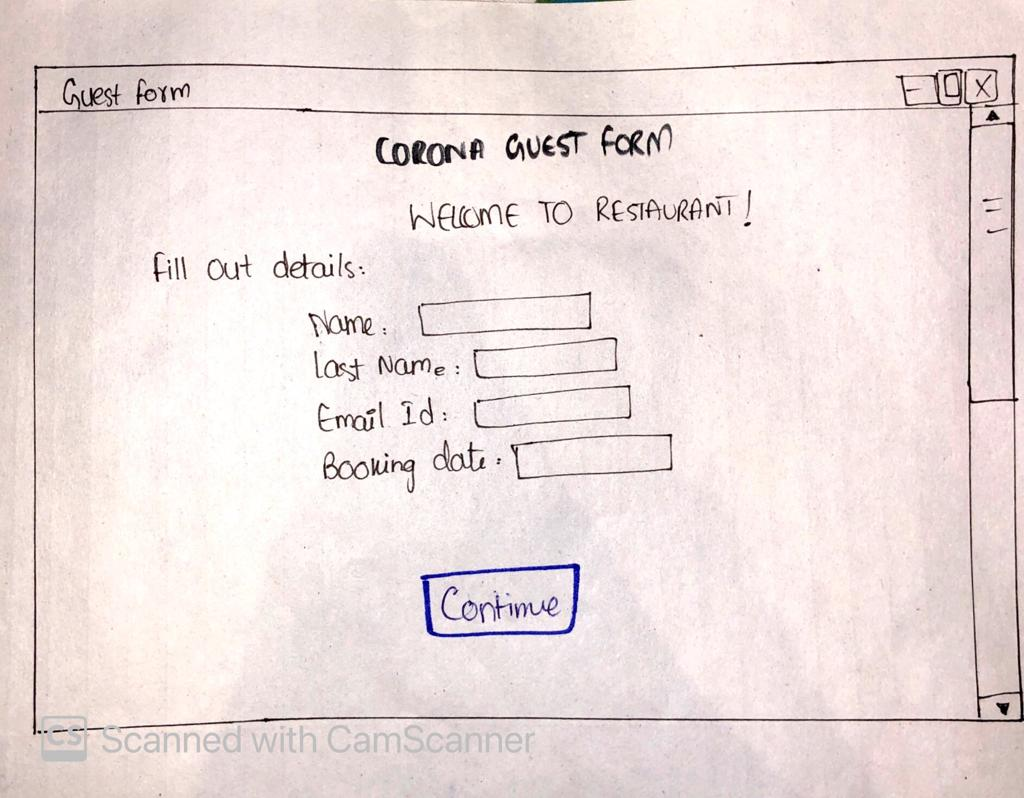 Guest form
CORONA GUEST FORM
WELCOME TO RESTAURANT!
fill out details:
Name:
Last Name:
Email Id:
Booking date:
Continue
CS Scanned with CamScanner